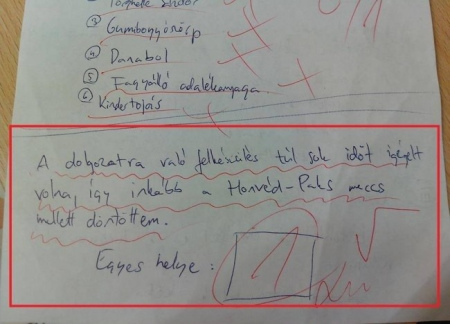 ③ Gumbogyósóp
④ Danabol
⑤ Fagyálló adalékanyaga
⑥ Kindertojás
A dolgozatra való felkészülés túl sok időt igényelt
volna, így inkább a Honvéd-Paks meccs
mellett döntöttem.
Egyes helye: 1